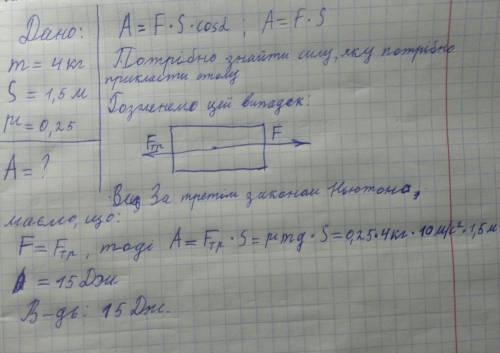 Дано:
m = 4 кг
S = 1,5 м
μ = 0,25
A = ?
A = F · S · cosα ; A = F · S
Потрібно знайти силу, яку потрібно
прикласти
Розгленемо цей випадок:
Fтр F
За третім законом Ньютона,
маємо, що:
F = Fтр, тоді A = Fтр · S = μmg · S = 0,25 · 4кг · 10 м/с² · 1,5 м
A = 15 Дж
В-дь: 15 Дж.